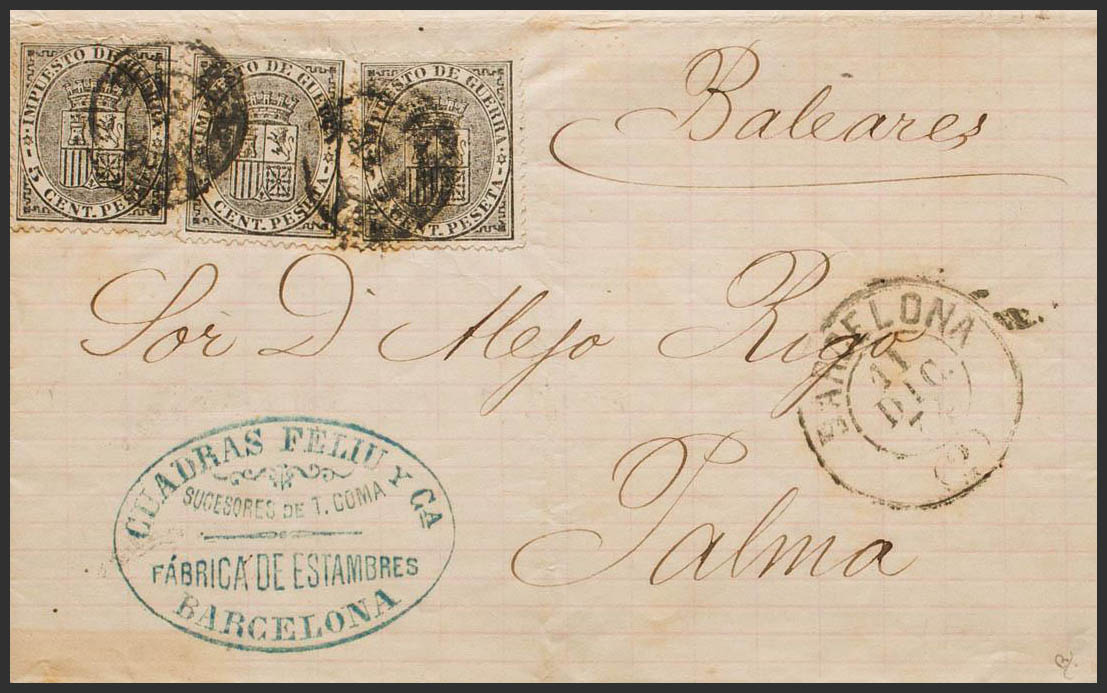 IMPUESTO DE GUERRA
5 CENT. PESETA
IMPUESTO DE GUERRA
5 CENT. PESETA
IMPUESTO DE GUERRA
5 CENT. PESETA
Baleares
Sor D. Alejo Rigo
Palma
BARCELONA
11
DIC.
CUADRAS FELIU Y CA
SUCESORES DE T. COMA
FÁBRICA DE ESTAMBRES
BARCELONA